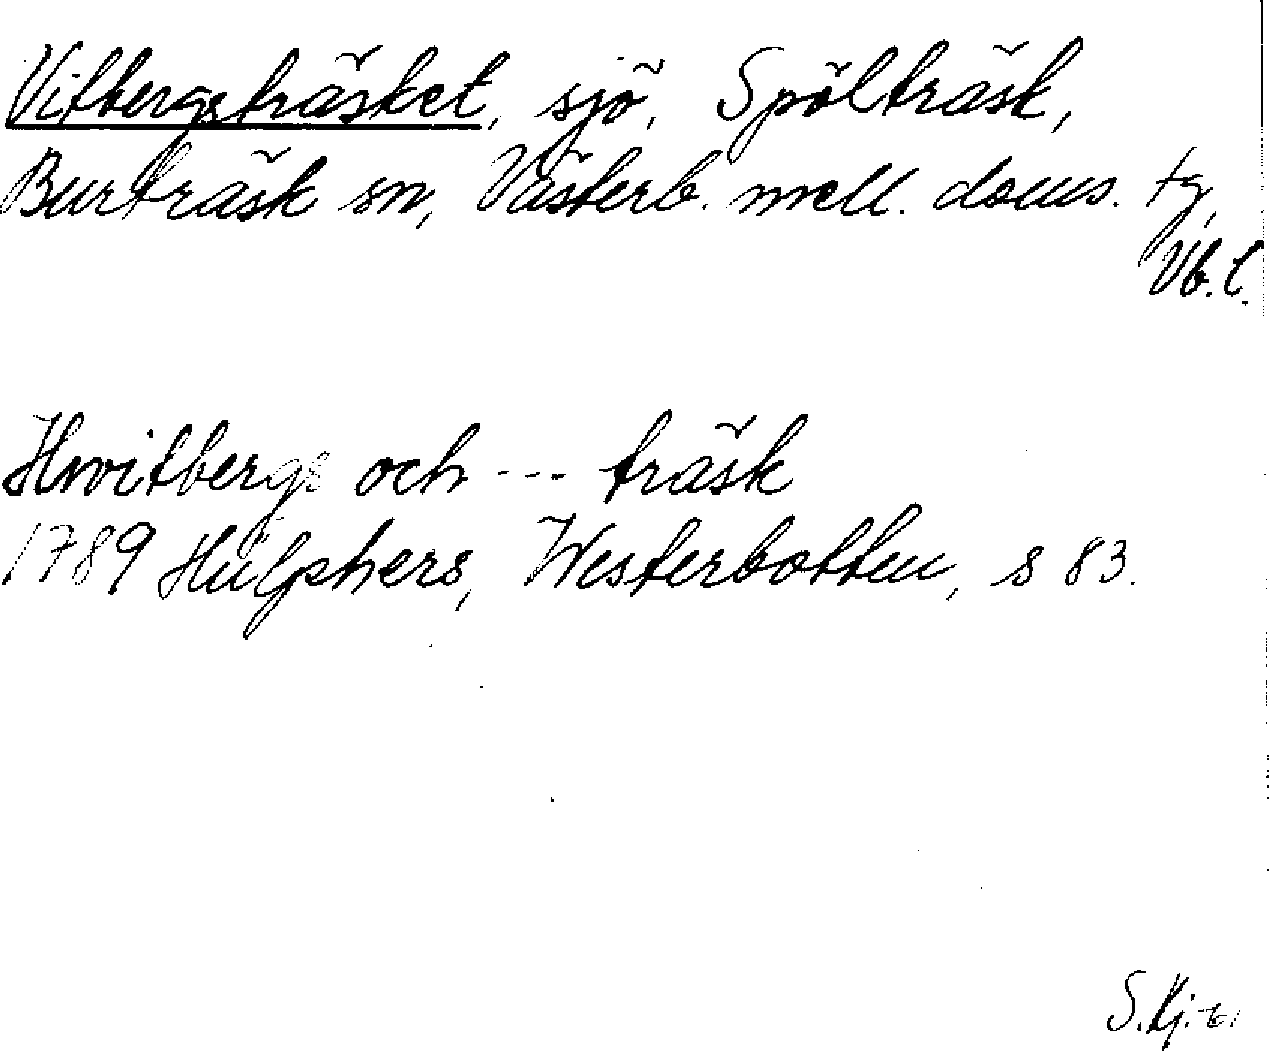 Vitbergsträsket, sjö, Spölträsk,
Burträsk sn, Västerb. mell. doms. tg,
Vb. l.
Hwitbergs och --- träsk
1789 Hülphers, Westerbotten, s 83.
S. Kj.-b.